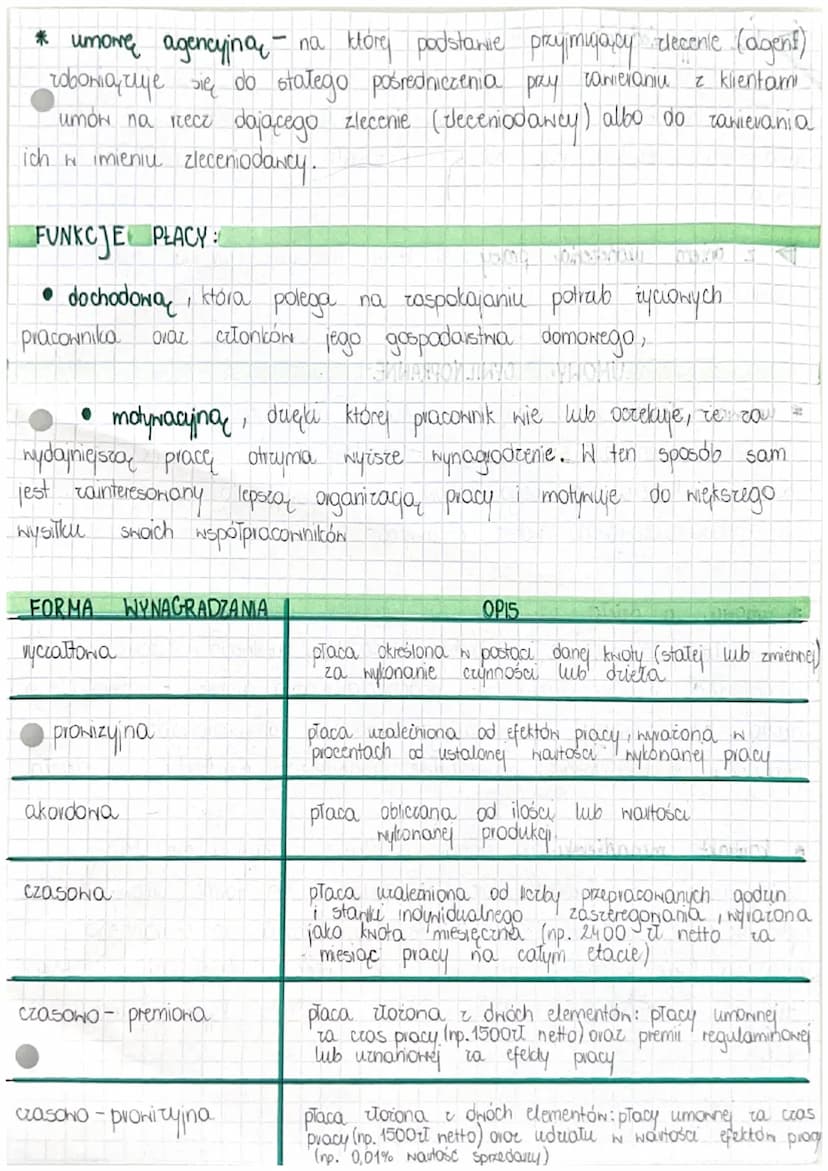 * umowę agencyjną - na której podstawie przyjmujący zlecenie (agent)
zobowiązuje się do stałego pośredniczenia przy zawieraniu z klientami
umów na rzecz dającego zlecenie (zleceniodawcy) albo do zawierania
ich w imieniu zleceniodawcy.
FUNKCJE PŁACY:
• dochodową, która polega na zaspokajaniu potrzeb życiowych
pracownika oraz członków jego gospodarstwa domowego,
• motywacyjną, dzięki której pracownik wie lub oczekuje, że za
wydajniejszą pracę otrzyma wyższe wynagrodzenie. W ten sposób sam
jest zainteresowany lepszą organizacją pracy i motywuje do większego
wysiłku swoich współpracowników
FORMA WYNAGRADZANIA OPIS
ryczałtowa płaca określona w postaci danej kwoty (stałej lub zmiennej)
za wykonanie czynności lub dzieła
prowizyjna płaca uzależniona od efektów pracy, wyrażona w
procentach od ustalonej wartości wykonanej pracy
akordowa płaca obliczana od ilości lub wartości
wykonanej produkcji.
czasowa płaca uzależniona od liczby przepracowanych godzin
i stawki indywidualnego zaszeregowania, wyrażona
jako kwota miesięczna (np. 2400 zł netto za
miesiąc pracy na całym etacie)
czasowo - premiowa płaca złożona z dwóch elementów: płacy umownej
za czas pracy (np. 1500zł netto) oraz premii regulaminowej
lub uznaniowej za efekty pracy
czasowo - prowizyjna płaca złożona z dwóch elementów: płacy umownej za czas
pracy (np. 1500zł netto) oraz udziału w wartości efektów pracy
(np. 0,01% wartość sprzedaży)